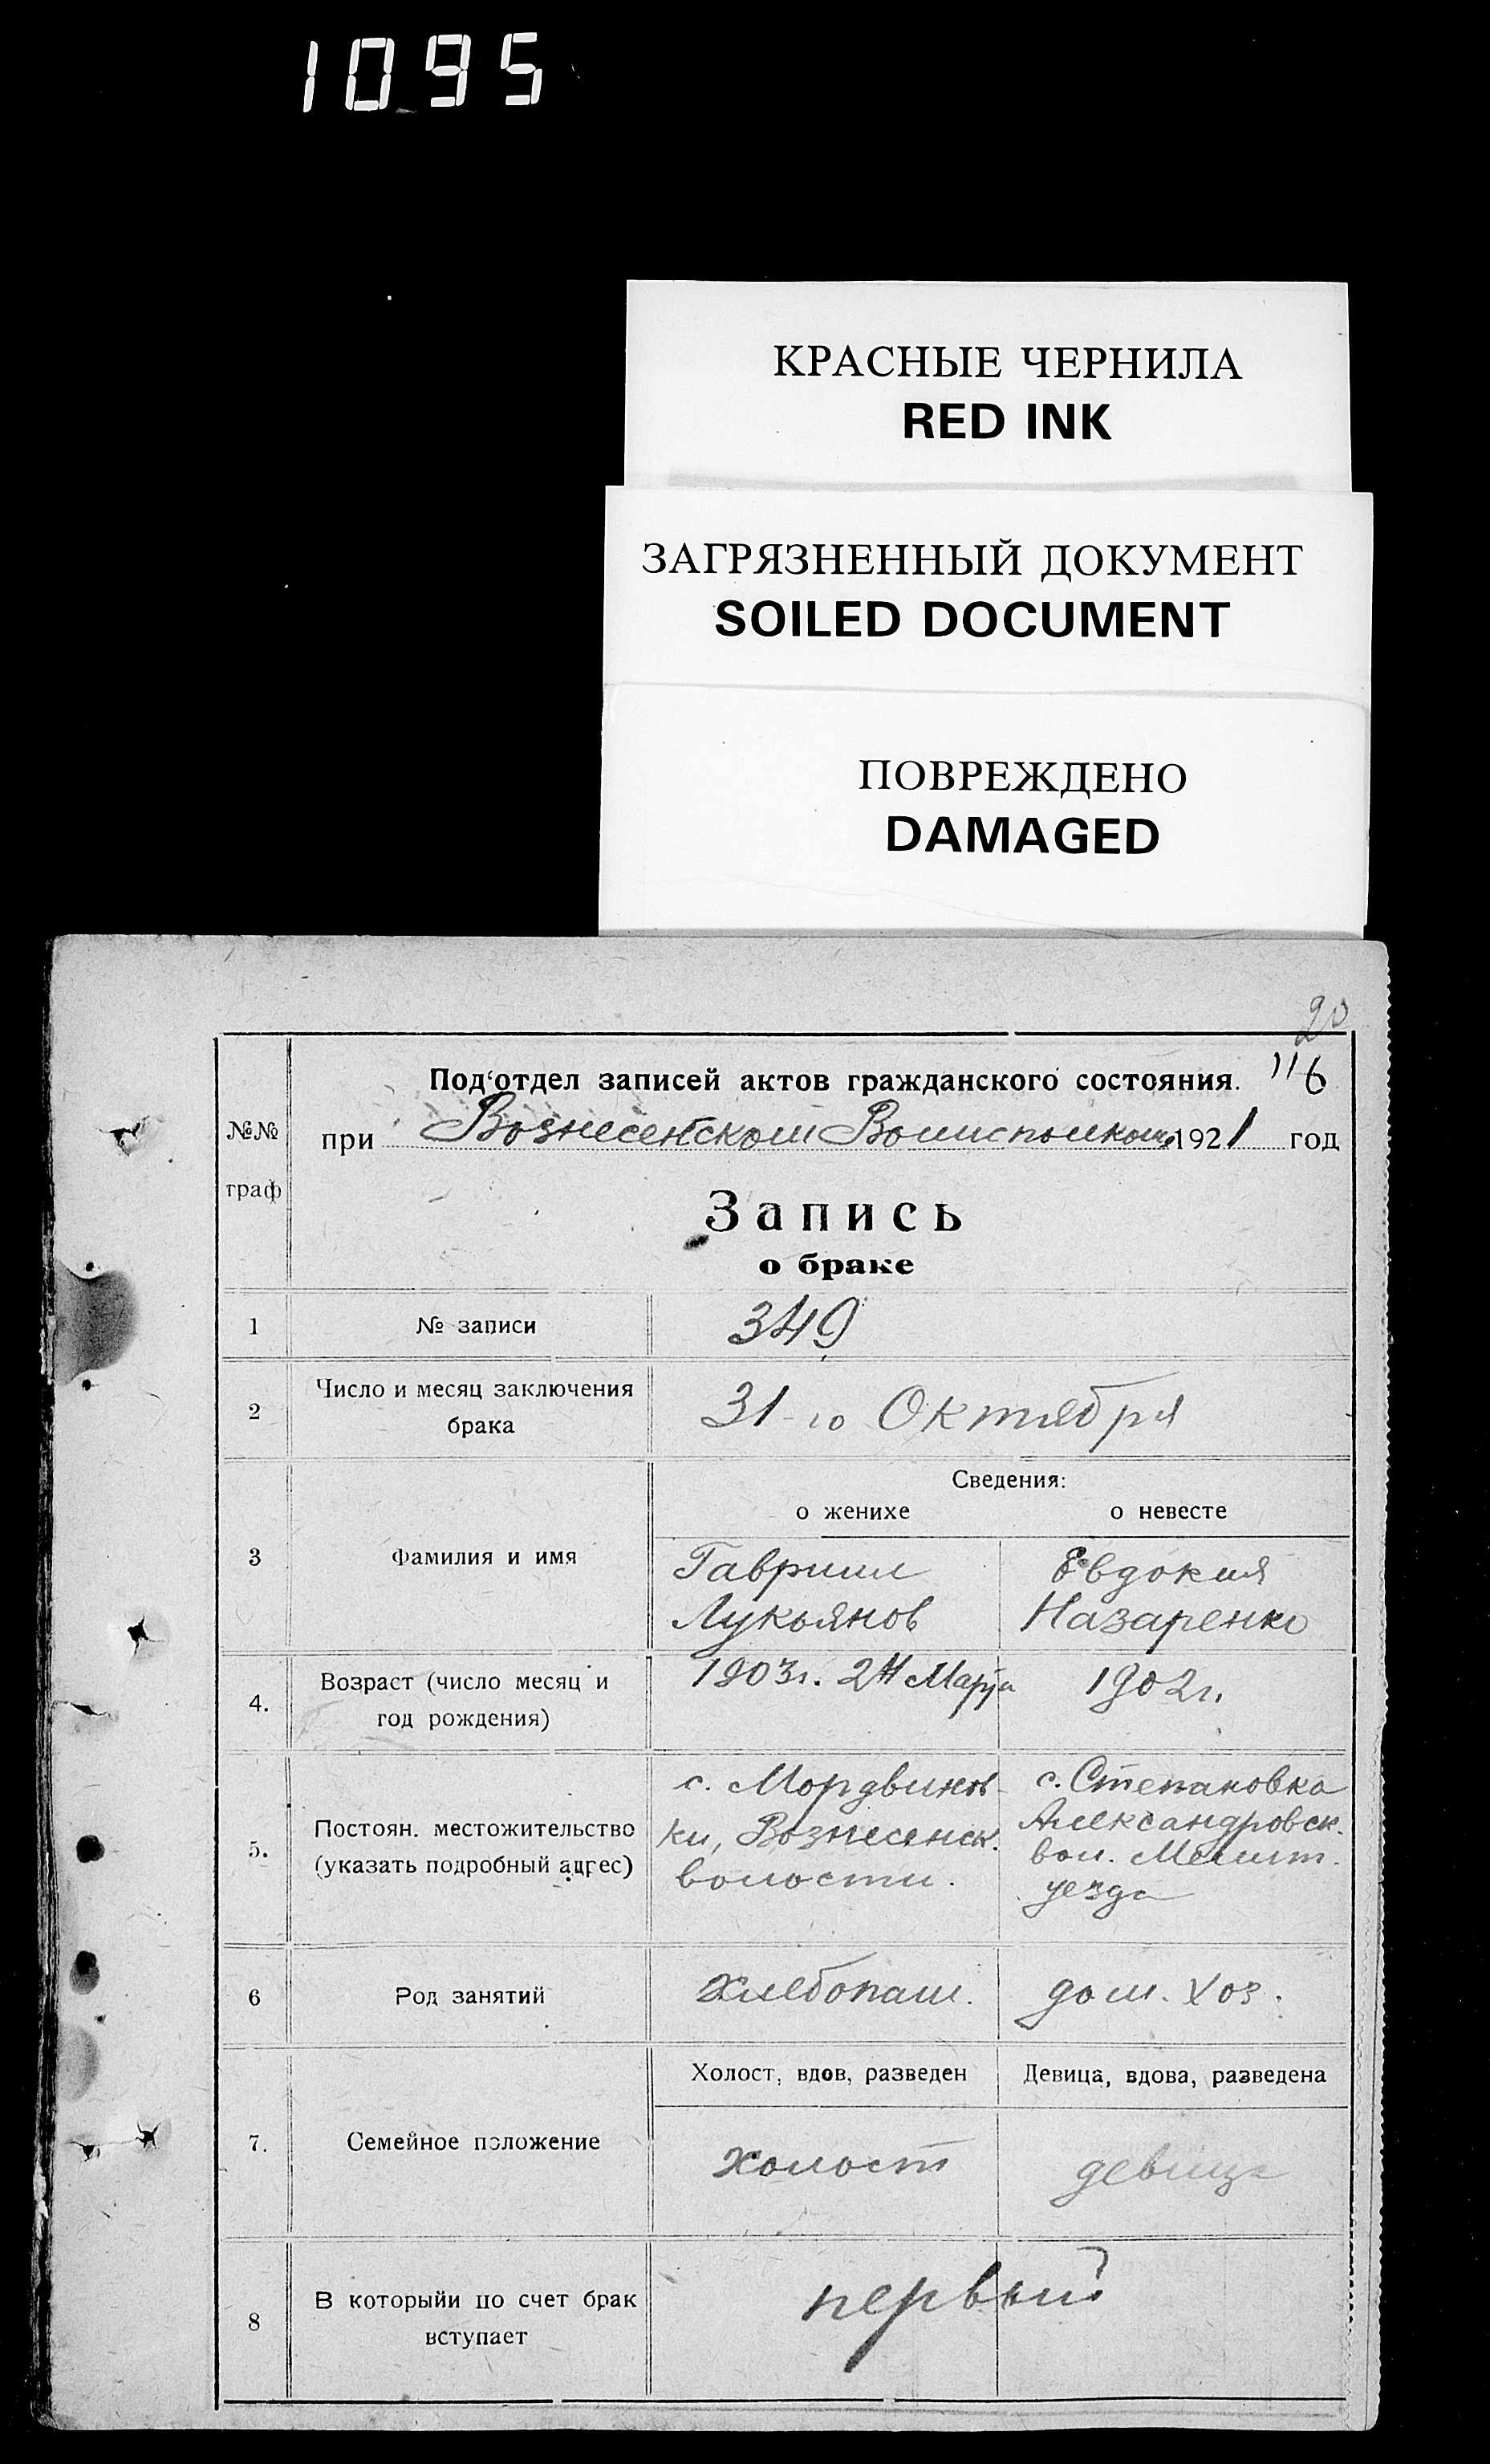 1095
КРАСНЫЕ ЧЕРНИЛА
RED INK
ЗАГРЯЗНЕННЫЙ ДОКУМЕНТ
SOILED DOCUMENT
ПОВРЕЖДЕНО
DAMAGED
20
116
Под'отдел записей актов гражданского состояния.
№№ граф
при Вознесенском Волисполкоме 1921 год
Запись
о браке
1 № записи 349
2 Число и месяц заключения брака 31-го Октября
Сведения:
о женихе о невесте
3 Фамилия и имя
Гавриил Евдокия
Лукьянов Назаренко
4. Возраст (число месяц и год рождения) 1903г. 24 Марта 1902г.
5. Постоян. местожительство (указать подробный адрес)
с. Мордвинов- с. Степановка
ки, Вознесенск. Александровск.
волости. вол. Мелит.
уезда
6 Род занятий хлебопаш. дом. хоз.
Холост, вдов, разведен Девица, вдова, разведена
7. Семейное положение холост девица
8 В которыйи по счет брак вступает первый